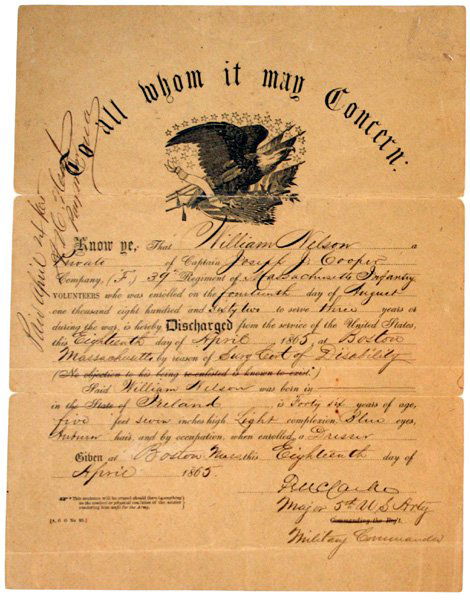 To all whom it may Concern:
Know ye, That William Nelson a
Private of Captain Joseph J. Cooper
Company, (F,) 39th Regiment of Massachusetts Infantry
VOLUNTEERS who was enrolled on the fourteenth day of August
one thousand eight hundred and sixty two to serve three years or
during the war, is hereby Discharged from the service of the United States,
this Eighteenth day of April 1865, at Boston
Massachusetts by reason of Surg Cert of Disability
(No objection to his being re-enlisted is known to exist.)
Said William Nelson was born in
in the State of Ireland is Forty six years of age,
five feet seven inches high, Light complexion, Blue eyes,
Auburn hair, and by occupation, when enrolled, a Dresser
Given at Boston Mass, this Eighteenth day of
April 1865.
Clarke
Major 5th U.S. Arty
Commanding the Reg't.
Military Commander
This sentence will be erased should there be anything
in the conduct or physical condition of the soldier
rendering him unfit for the Army.
[A. G. O. No. 99.]
Paid April 24 65